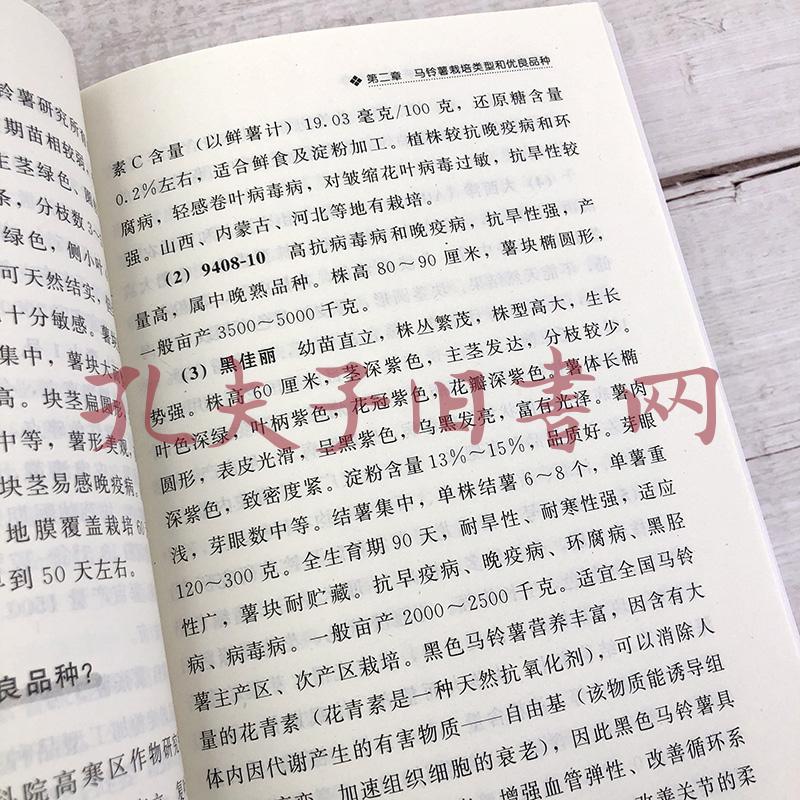 铃薯研究所
期苗相较弱
主茎绿色
条，分枝数3~
绿色，侧小叶
可天然结实，
十分敏感。薯
集中，薯块大
高。块茎扁圆形
中等，薯形美观，
块茎易感晚疫病。
地膜覆盖栽培60
到 50 天左右。
良品种？
科院高寒区作物研究
第二章 马铃薯栽培类型和优良品种
素 C 含量（以鲜薯计）19.03 毫克/100 克，还原糖含量
0.2%左右，适合鲜食及淀粉加工。植株较抗晚疫病和环
腐病，轻感卷叶病毒病，对皱缩花叶病毒过敏，抗旱性较
强。山西、内蒙古、河北等地有栽培。
(2) 9408-10 高抗病毒病和晚疫病，抗旱性强，产
量高，属中晚熟品种。株高 80～90 厘米，薯块椭圆形，
一般亩产 3500～5000 千克。
(3) 黑佳丽 幼苗直立，株丛繁茂，株型高大，生长
势强。株高 60 厘米，茎深紫色，主茎发达，分枝较少。
叶色深绿，叶柄紫色，花冠紫色，花瓣深紫色。薯体长椭
圆形，表皮光滑，呈黑紫色，乌黑发亮，富有光泽。薯肉
深紫色，致密度紧。淀粉含量 13%～15%，品质好。芽眼
浅，芽眼数中等。结薯集中，单株结薯 6～8 个，单薯重
120～300 克。全生育期 90 天，耐旱性、耐寒性强，适应
性广，薯块耐贮藏。抗早疫病、晚疫病、环腐病、黑胫
病、病毒病。一般亩产 2000～2500 千克。适宜全国马铃
薯主产区、次产区栽培。黑色马铃薯营养丰富，因含有大
量的花青素（花青素是一种天然抗氧化剂），可以消除人
体内因代谢产生的有害物质——自由基（该物质能诱导组
加速组织细胞的衰老），因此黑色马铃薯具
增强血管弹性、改善循环系
改善关节的柔
孔夫子旧书网